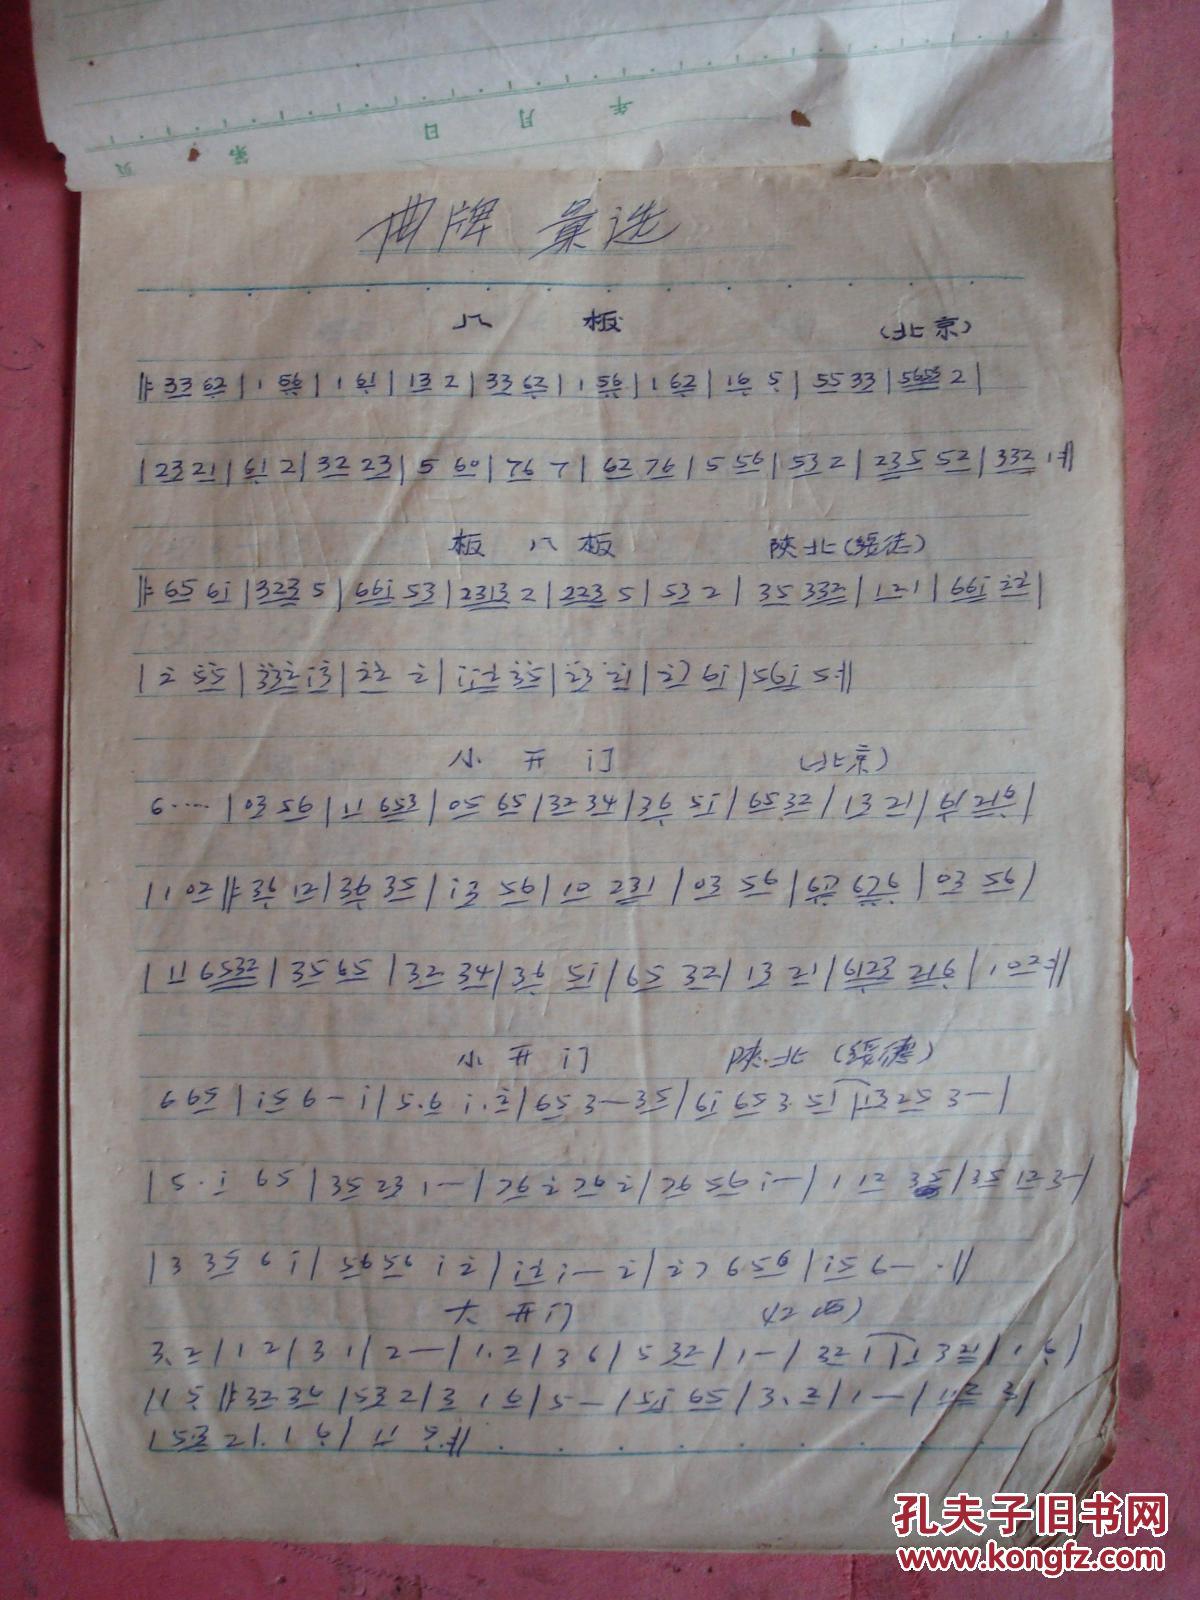 年 月 日
第 页
曲牌 彙选
八 板 (北京)
‖: 33 62 | 1 56 | 1 61 | 13 2 | 33 62 | 1 56 | 1 62 | 16 5 | 55 33 | 5653 2 |
| 23 21 | 61 2 | 32 23 | 5 60 | 76 7 | 62 76 | 5 56 | 53 2 | 235 52 | 332 1 :‖
板 八 板 陕北(绥德)
‖: 65 6i | 323 5 | 66i 53 | 2313 2 | 223 5 | 53 2 | 35 332 | 121 | 66i 22 |
| 2 55 | 332 13 | 22 2 | 112 35 | 23 12 | 27 6i | 56i 5 :‖
小 开 门 (北京)
6 ····· | 03 56 | 11 653 | 05 65 | 32 34 | 36 51 | 65 32 | 13 21 | 61 216 |
| 1 02 ‖: 36 12 | 36 35 | i3 56 | 10 231 | 03 56 | 672 676 | 03 56 |
| 11 6532 | 35 65 | 32 34 | 36 51 | 65 32 | 13 21 | 6123 216 | 1 02 :‖
小 开 门 陕北(绥德)
6 65 | i5 6 - 5i | 5·6 i·2 | 65 3 - 35 | 6i 65 3·5 1 | 1325 3 - |
| 5·i 65 | 35 23 1 - | 76 2 76 2 | 76 56 i - | 1 12 35 | 35 12 3 - |
| 3 35 6 i | 5656 i 2 | i2 i - 2 | 27 656 | i5 6 - · ‖
大 开 门 (江西)
3·2 | 1 2 | 3 1 | 2 - | 1·2 | 3 6 | 5 32 | 1 - | 32 1 | 1 321 | 1 6 |
| 1 5 ‖: 32 36 | 53 2 | 3 1 6 | 5 - | 51 65 | 3·2 | 1 - | 112 3 |
| 53 2 | 1 6 | 11 5 :‖
孔夫子旧书网
www.kongfz.com